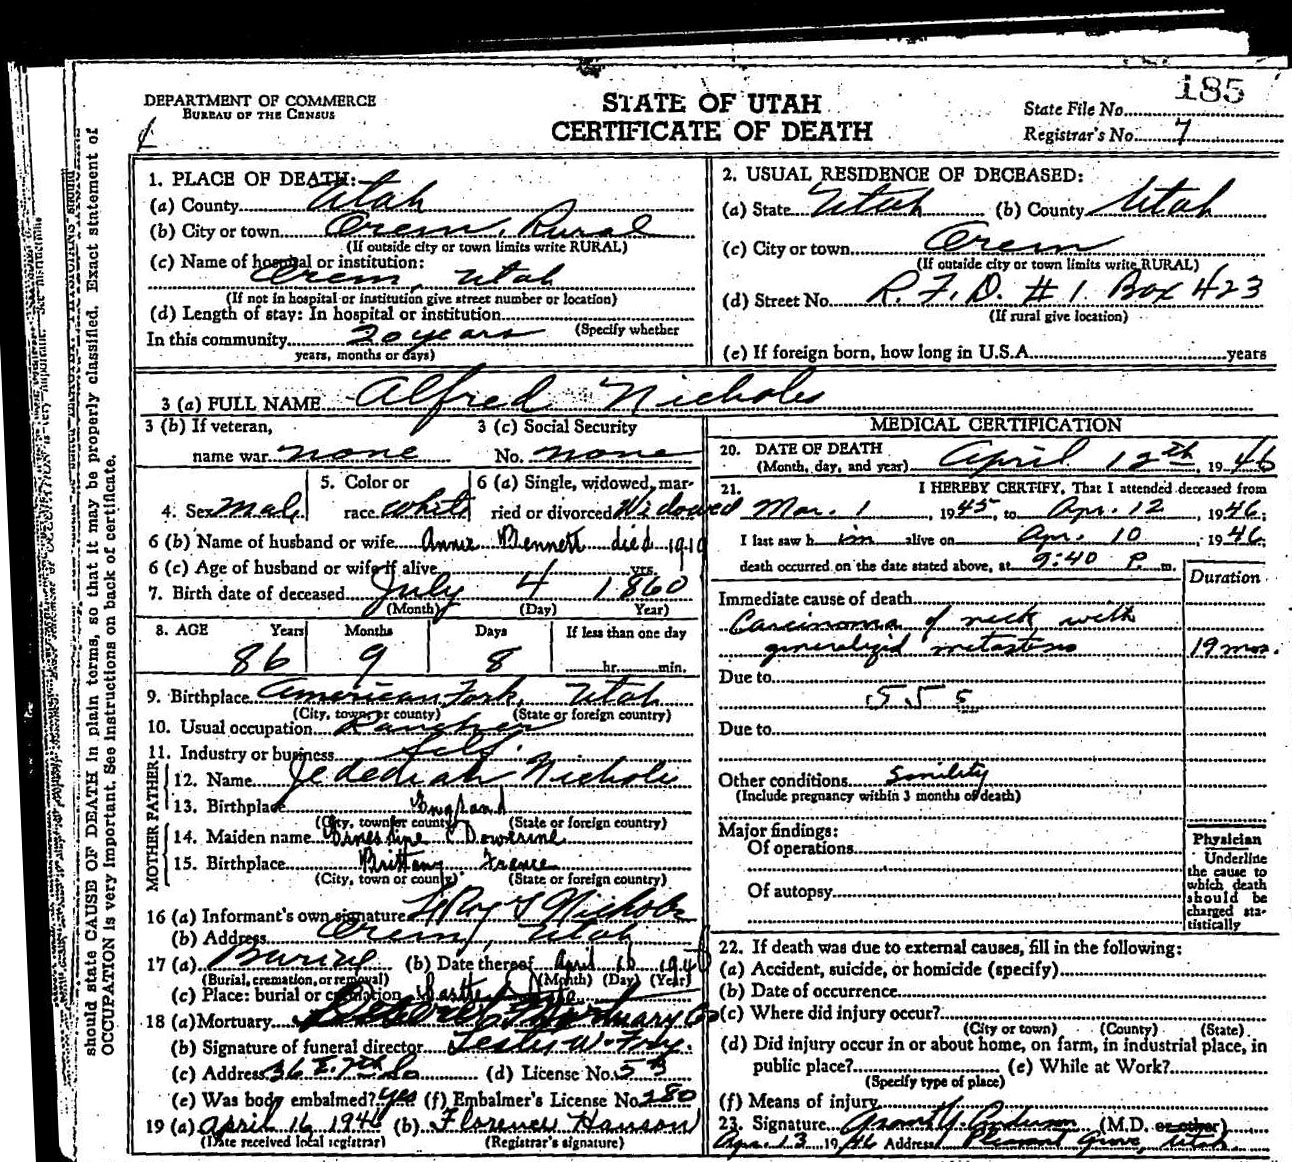 185
DEPARTMENT OF COMMERCE
BUREAU OF THE CENSUS
STATE OF UTAH
CERTIFICATE OF DEATH
State File No.
Registrar's No. 7
1. PLACE OF DEATH:
(a) County Utah
(b) City or town Orem, Rural
(If outside city or town limits write RURAL)
(c) Name of hospital or institution:
Orem, Utah
(If not in hospital or institution give street number or location)
(d) Length of stay: In hospital or institution
(Specify whether
In this community 20 years
years, months or days)
2. USUAL RESIDENCE OF DECEASED:
(a) State Utah (b) County Utah
(c) City or town Orem
(If outside city or town limits write RURAL)
(d) Street No. R.F.D. #1 Box 423
(If rural give location)
(e) If foreign born, how long in U.S.A. years
3 (a) FULL NAME Alfred Nichols
3 (b) If veteran, name war none
3 (c) Social Security No. none
4. Sex Male
5. Color or race white
6 (a) Single, widowed, married or divorced Widowed
6 (b) Name of husband or wife Annie Bennett died 1919
6 (c) Age of husband or wife if alive yrs.
7. Birth date of deceased July 4 1860
(Month) (Day) Year)
8. AGE Years Months Days If less than one day
86 9 8 hr. min.
9. Birthplace American Fork, Utah
(City, town, or county) (State or foreign country)
10. Usual occupation Rancher
11. Industry or business Self.
FATHER
12. Name Jedediah Nichols
13. Birthplace England
(City, town or county) (State or foreign country)
MOTHER
14. Maiden name Ernestine
15. Birthplace Brittany France
(City, town or county) (State or foreign country)
16 (a) Informant's own signature LeRoy S Nichols
(b) Address Orem, Utah
17 (a) Burial (b) Date thereof April 16 1946
(Burial, cremation, or removal) (Month) (Day) (Year)
(c) Place: burial or cremation
18 (a) Mortuary Mortuary Co
(b) Signature of funeral director
(c) Address 36 E. 7th So (d) License No. 53
(e) Was body embalmed? yes (f) Embalmer's License No. 280
19 (a) April 16, 1946 (b) Florence Hanson
(Date received local registrar) (Registrar's signature)
MEDICAL CERTIFICATION
20. DATE OF DEATH
(Month, day, and year) April 12th, 1946
21. I HEREBY CERTIFY, That I attended deceased from
Mar. 1, 1945, to Apr. 12 1946;
I last saw h im alive on Apr. 10, 1946;
death occurred on the date stated above, at 9:40 P. m.
Duration
Immediate cause of death
Carcinoma of neck with
generalized metastasis 19 mos.
Due to
55 5
Due to
Other conditions Senility
(Include pregnancy within 3 months of death)
Major findings:
Of operations
Of autopsy
Physician
Underline
the cause to
which death
should be
charged sta-
tistically
22. If death was due to external causes, fill in the following:
(a) Accident, suicide, or homicide (specify)
(b) Date of occurrence
(c) Where did injury occur?
(City or town) (County) (State)
(d) Did injury occur in or about home, on farm, in industrial place, in
public place? (e) While at Work?
(Specify type of place)
(f) Means of injury
23. Signature Grant Y. Anderson (M.D. or other)
Apr. 13 1946 Address Pleasant Grove, Utah
should state CAUSE OF DEATH in plain terms, so that it may be properly classified. Exact statement of
OCCUPATION is very important. See instructions on back of certificate.